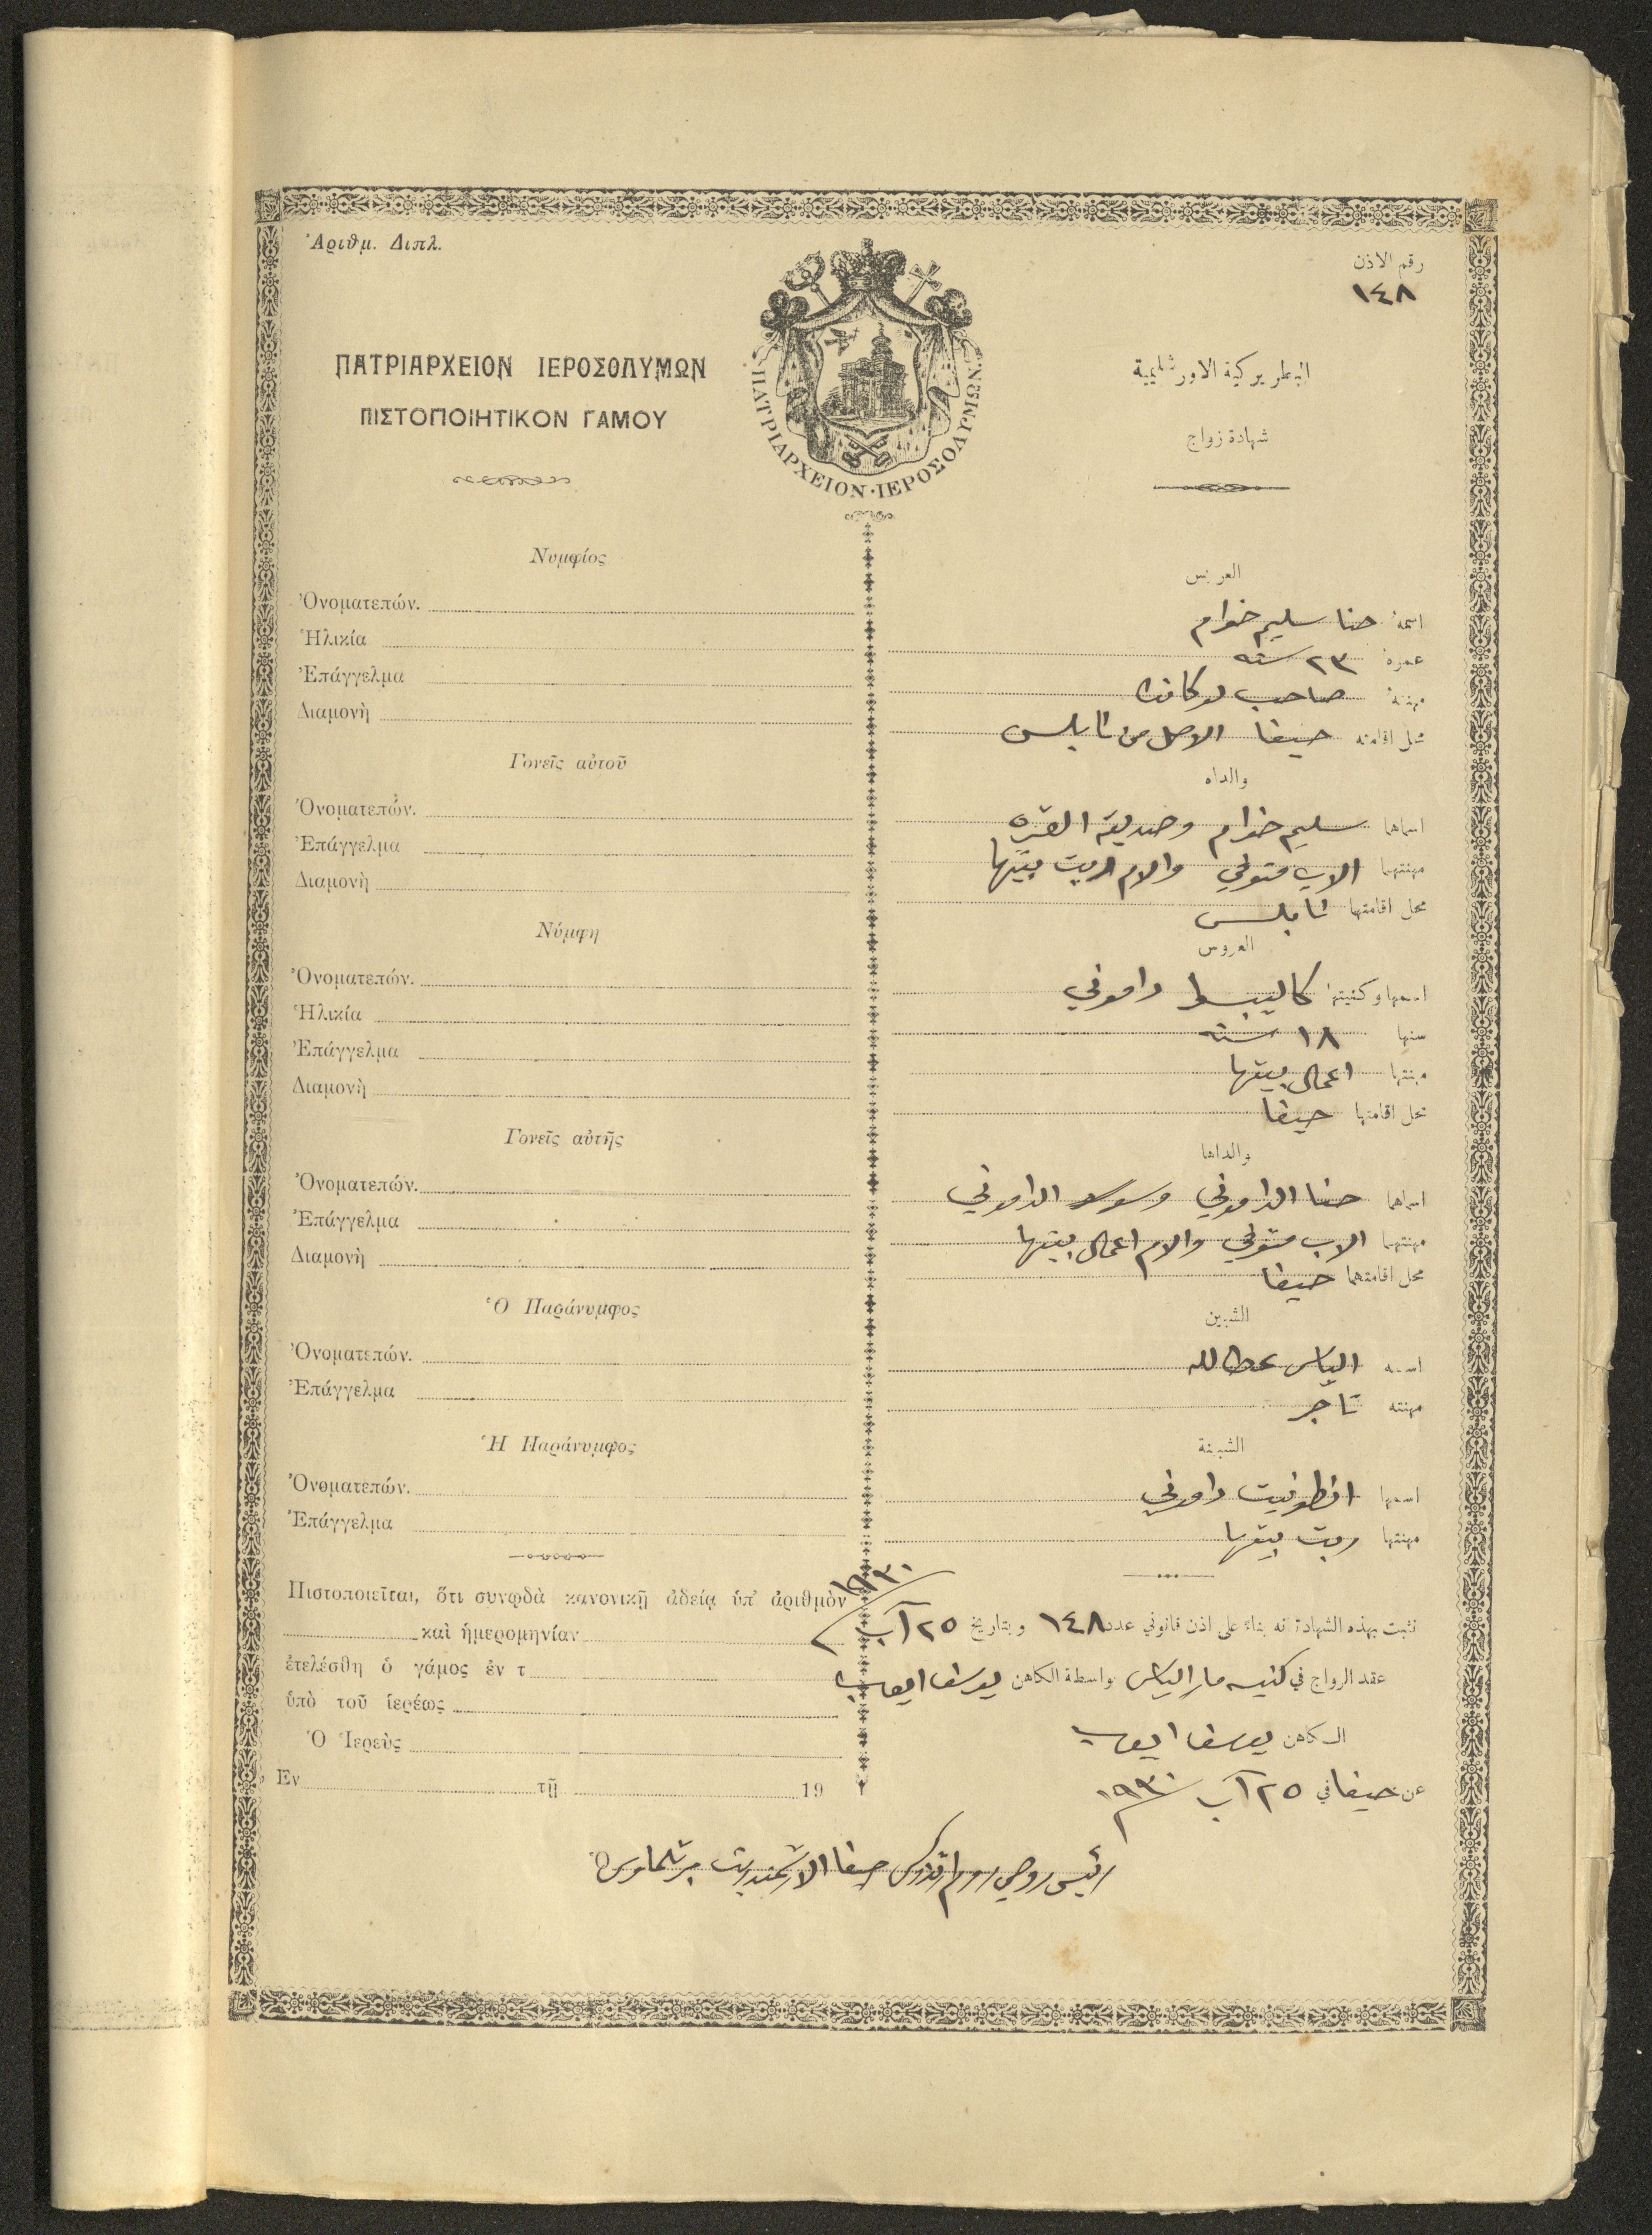 Ἀριθμ. Διπλ.
رقم الاذن
١٤٨
ΠΑΤΡΙΑΡΧΕΙΟΝ ΙΕΡΟΣΟΛΥΜΩΝ
ΠΙΣΤΟΠΟΙΗΤΙΚΟΝ ΓΑΜΟΥ
ΠΑΤΡΙΑΡΧΕΙΟΝ · ΙΕΡΟΣΟΛΥΜΩΝ
البطريركية الاورشليمية
شهادة زواج
Νυμφίος
Ὀνοματεπών.
Ἡλικία
Ἐπάγγελμα
Διαμονὴ
Γονεῖς αὐτοῦ
Ὀνοματεπών.
Ἐπάγγελμα
Διαμονὴ
Νύμφη
Ὀνοματεπών.
Ἡλικία
Ἐπάγγελμα
Διαμονὴ
Γονεῖς αὐτῆς
Ὀνοματεπών.
Ἐπάγγελμα
Διαμονὴ
Ὁ Παράνυμφος
Ὀνοματεπών.
Ἐπάγγελμα
Ἡ Παράνυμφος
Ὀνοματεπών.
Ἐπάγγελμα
Πιστοποιεῖται, ὅτι συνῳδὰ κανονικῇ ἀδείᾳ ὑπ' ἀριθμὸν
καὶ ἡμερομηνίαν
ἐτελέσθη ὁ γάμος ἐν τ
ὑπὸ τοῦ ἱερέως
Ὁ Ἱερεὺς
Ἐν τῇ 19
العريس
اسمه حنا سليم خوام
عمره ٢٣ سنه
مهنته صاحب لوكانده
محل اقامته حيفا الاصل من نابلس
والداه
اسماهما سليم خوام وصديقه القره
مهنتهما الاب متوفي والام ربت بيتها
محل اقامتهما نابلس
العروس
اسمها وكنيتها كاليبسو داموني
سنها ١٨ سنه
مهنتها اعمال بيتها
محل اقامتها حيفا
والداها
اسماهما حنا الداموني وسو الداموني
مهنتهما الاب متوفي والام اعمال بيتها
محل اقامتهما حيفا
الشبين
اسمه الياس عطالله
مهنته تاجر
الشبينة
اسمها انطونيت داموني
مهنتها ربت بيتها
تثبت بهذه الشهادة انه بناء على اذن قانوني عدد ١٤٨ وبتاريخ ٢٥ آب ١٩٣٠
عقد الزواج في كنيسه مار الياس بواسطة الكاهن يوسف ايوب
الكاهن يوسف ايوب
عن حيفا في ٢٥ آب ١٩٣٠
رئيس روحي روم ارثوذكس حيفا الارشمندريت